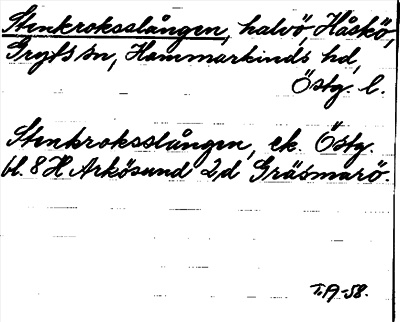 Stenkroksslången, halvö Håskö,
Gryts sn, Hammarkinds hd,
Östg. l.
Stenkroksslången, ek. Östg.
bl. 8 H Arkösund 2d Gräsmarö.
T.A-58.